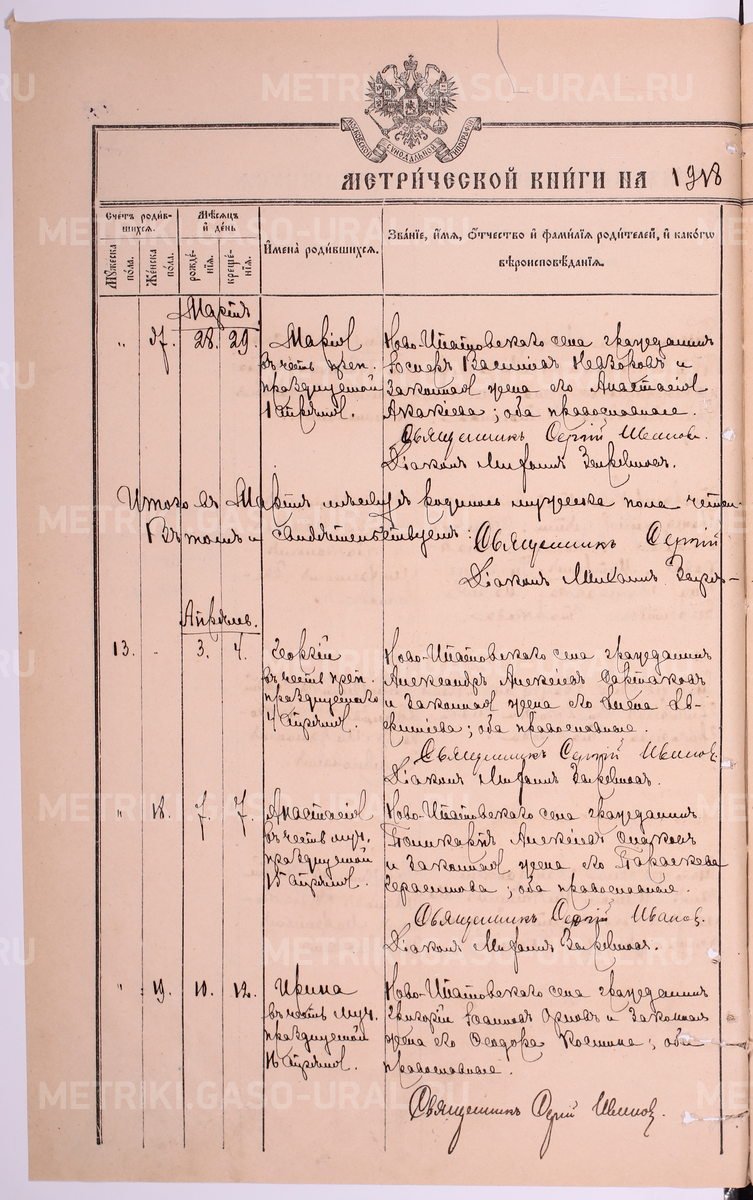 METRIKI.GASO-URAL.RU
МОСКОВСКОЙ СѴНОДАЛЬНОЙ ТИПОГРАФІИ
МЕТРИЧЕСКОЙ КНИГИ НА 1918
Счетъ родившихся.
Мѣсяцъ и день
Мужеска пола.
Женска пола.
рожденія.
крещенія.
Имена родившихся.
Званіе, имя, отчество и фамилія родителей, и какого вѣроисповѣданія.
Мартъ
" 17. 28. 29. Марія Ново-Ипатовскаго села гражданинъ
въ честь преп. Іосифъ Васильевъ и
празднуемой законная жена его Анастасія
1 Апрѣля. Акакіева; оба православные.
Священникъ Сергій Ивановъ.
Діаконъ Михаилъ
Итого въ Мартѣ мѣсяцѣ родилось мужеска пола
Въ томъ и свидѣтельствуемъ: Священникъ Сергій
Діаконъ Михаилъ
Апрѣль.
13. " 3. 4. Георгій Ново-Ипатовскаго села гражданинъ
въ честь преп. Александръ Алексѣевъ
празднуемаго и законная жена его Елена
4 Апрѣля. оба православные.
Священникъ Сергій Ивановъ.
Діаконъ Михаилъ
" 18. 7. 7. Анастасія Ново-Ипатовскаго села гражданинъ
въ честь муч. Поликарпъ Алексѣевъ
празднуемой и законная жена его Параскева
15 Апрѣля. Герасимова; оба православные.
Священникъ Сергій Ивановъ.
Діаконъ Михаилъ
" 19. 10. 12. Ирина Ново-Ипатовскаго села гражданинъ
въ честь муч. Григорій Іоанновъ Орловъ и законная
празднуемой жена его Ѳеодора Космина; оба
16 Апрѣля. православные.
Священникъ Сергій Ивановъ.